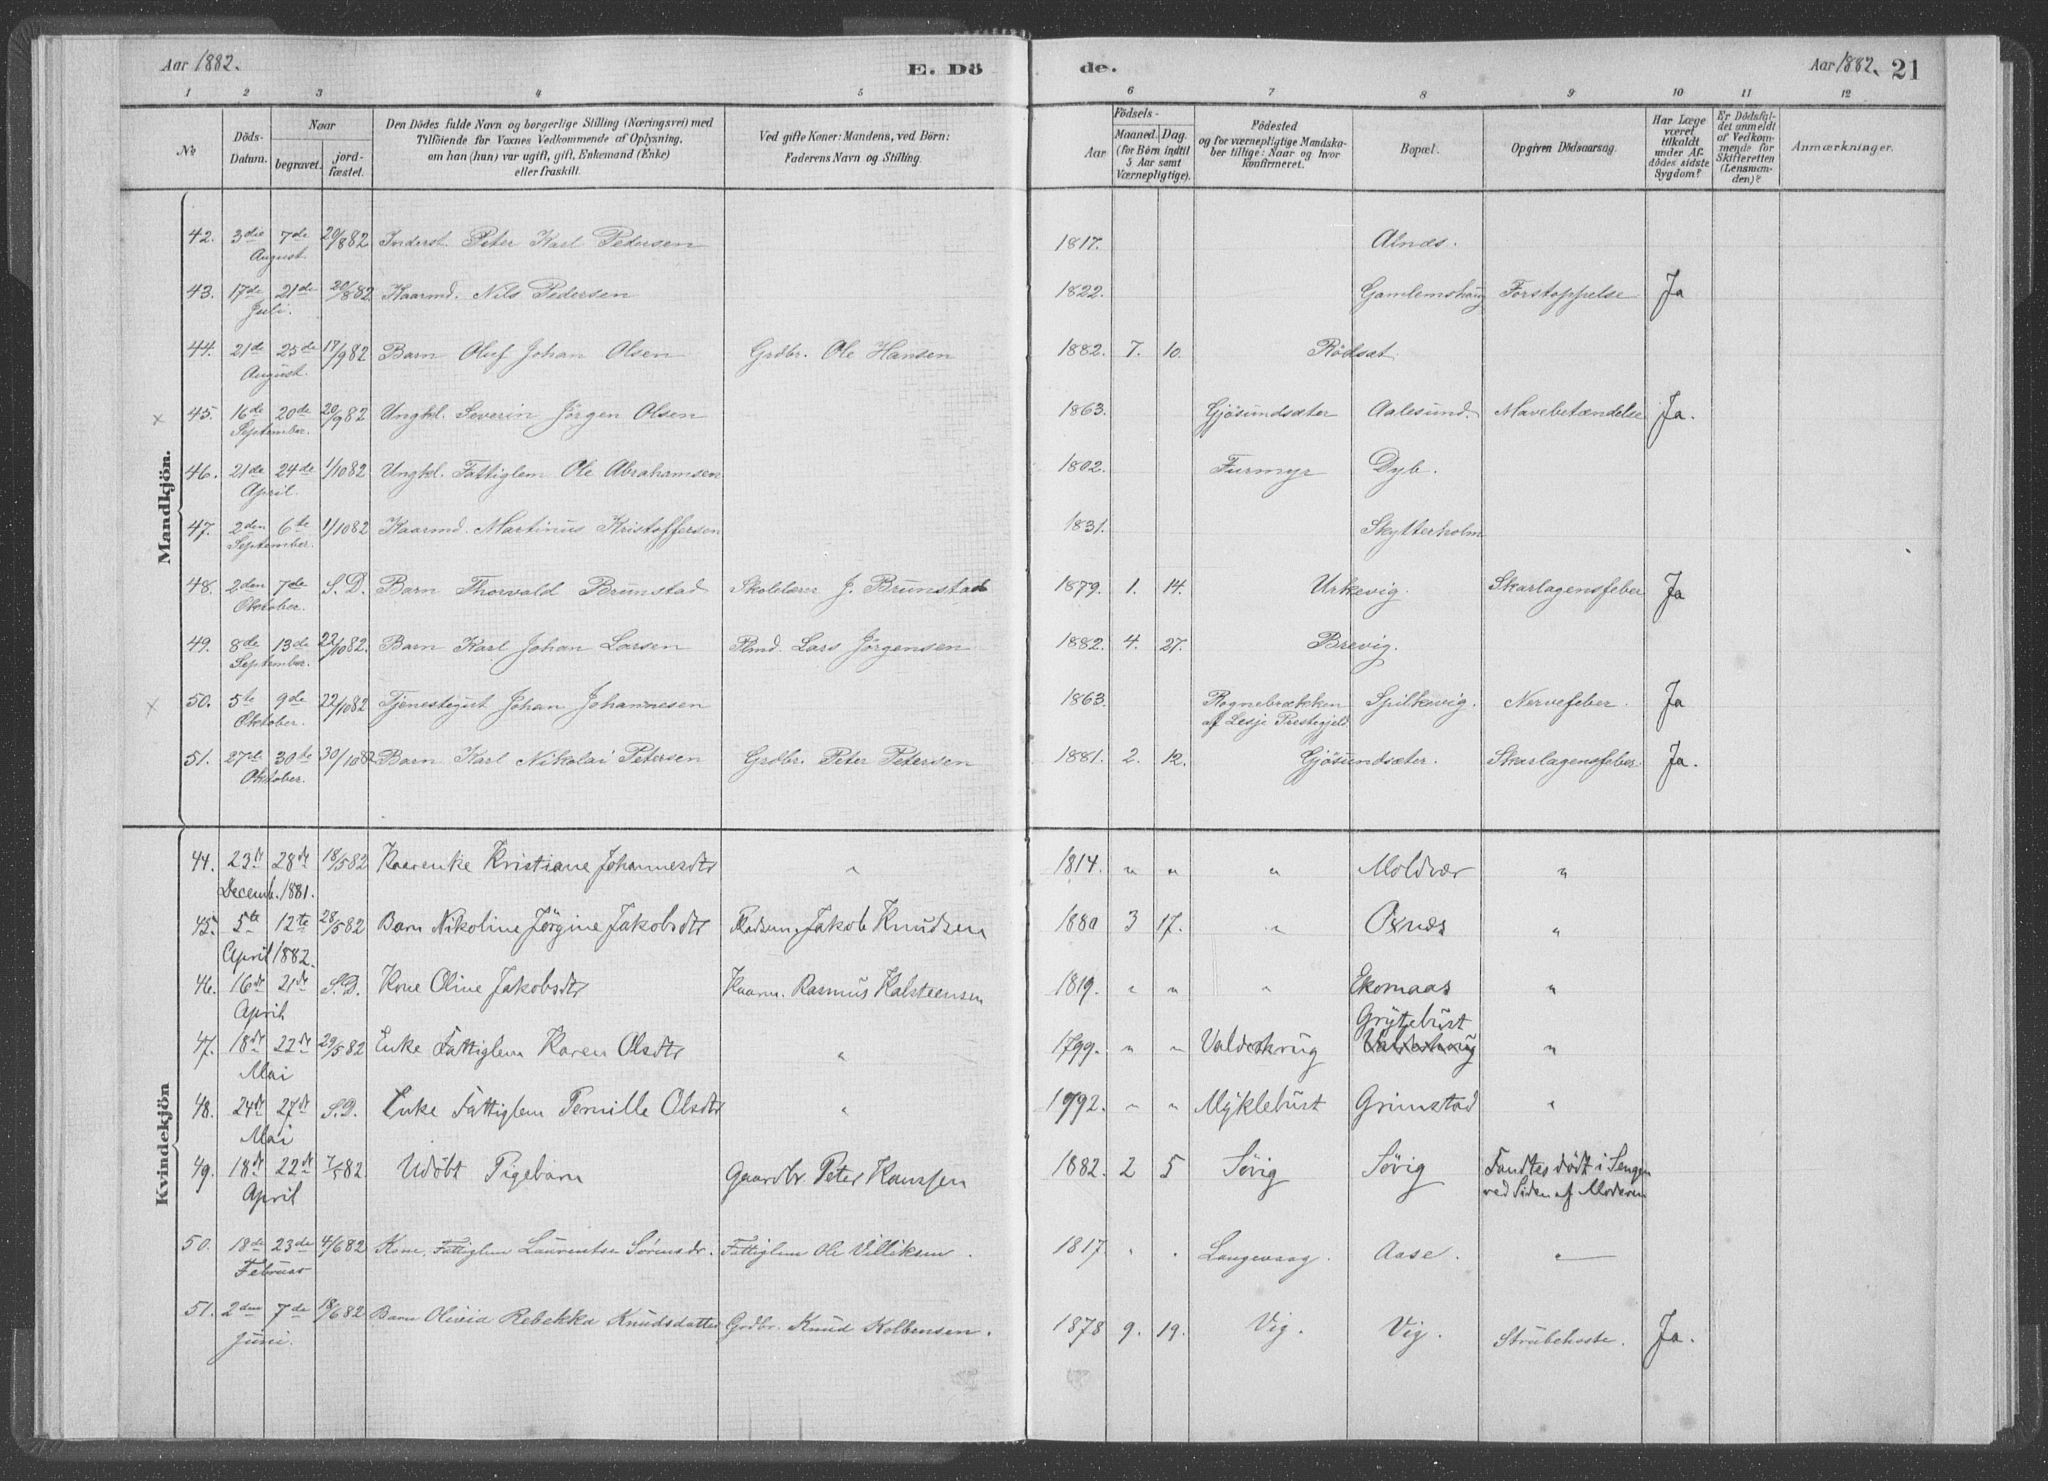 Aar 1882. E. Dö de. Aar 1882. 21
1 2 3 4 5 6 7 8 9 10 11 12
No
Döds-Datum.
Naar
begravet.
jord-fæstet.
Den Dödes fulde Navn og borgerlige Stilling (Næringsvei) med
Tilföiende for Voxnes Vedkommende af Oplysning,
om han (hun) var ugift, gift, Enkemand (Enke)
eller fraskilt.
Ved gifte Koner: Mandens, ved Börn:
Faderens Navn og Stilling.
Födsels-
Aar
Maaned. Dag.
(for Börn indtil
5 Aar samt
Værnepligtige).
Födested
og for værnepligtige Mandska-
ber tillige: Naar og hvor
konfirmeret.
Bopæl.
Opgiven Dödsaarsag.
Har Læge
været
tilkaldt
under Af-
dödes sidste
Sygdom?
Er Dödsfal-
det anmeldt
af Vedkom-
mende for
Skifteretten
(Lensman-
den)?
Anmærkninger.
Mandkjön.
42. 3die 7de 20/8 82 Inderst. Peter Karl Pedersen 1817. Alnæs.
August
43. 17de 21de 20/8 82 Kaarmd. Nils Pedersen 1822. Gamlemshaug Forstoppelse Ja
Juli.
44. 21de 25de 17/9 82 Barn Oluf Johan Olsen Grdbr. Ole Hansen 1882. 7. 10. Rödsæt
August.
x 45. 16de 20de 20/9 82 Ungkl. Severin Jörgen Olsen 1863. Gjösundsæter Aalesund. Mavebetændelse Ja.
September.
46. 21de 24de 1/10 82 Ungkl. Fattiglem Ole Abrahamsen 1802. Furmyr Dyb.
April.
47. 2den 6te 1/10 82 Kaarmd. Martinus Kristoffersen 1831. Skytterholm
September.
48. 2den 7de S. D. Barn Thorvald Brunstad Skolelærer J. Brunstad 1879. 1. 14. Urkevig. Skarlagensfeber Ja
Oktober.
49. 8de 13de 22/10 82. Barn Karl Johan Larsen Plmd. Lars Jörgensen 1882. 4. 27. Brevig.
September.
x 50. 5te 9de 22/10 82 Tjenestegut Johan Johannesen 1863. Rognebrækken Spilkevig. Nervefeber. Ja
Oktober. af Lesje Prestegjeld
51. 27de 30te 30/10 82 Barn Karl Nikolai Petersen Grdbr. Peter Petersen 1881. 2. 12. Gjösundsæter. Skarlagensfeber. Ja.
Oktober.
Kvindekjön
44. 23de 28de 18/5 82 Kaarenke Kristiane Johannesdtr " 1814. " " " Moldvær "
Decemb. 1881.
45. 5te 12te 28/5 82 Barn Nikoline Jörgine Jakobsdtr Jakob Knudsen 1880 3 17. " Oxnæs "
April 1882.
46. 16de 21de S.D. Kone Oline Jakobsdtr Kaarm. Rasmus Kalsteensen 1819. " " " Ekornaas "
April
Grytebust
47. 18de 22de 29/5 82 Enke Fattiglem Karen Olsdtr " 1799. " " "
Mai
48. 24de 27de S.D. Enke Fattiglem Pernille Olsdtr " 1792. " " Myklebust Grimstad "
Mai
49. 18de 22de 7/5 82 Udöbt Pigebarn Gaardbr Peter Hanssen 1882. 2 5 Søvig Søvig Fandtes dödt i Sengen
April ved Siden af Moderen
50. 18de 23de 4/6 82 Kone, Fattiglem Laurentse Sörensdr. Fattiglem Ole Villiksen. 1817. " " Langevaag. Aase. "
Februar
51. 2den 7de 18/6 82 Barn Olivia Rebekka Knudsdatter Grdbr. Knud Kolbensen. 1878 9. 19. Vig. Vig. Strubehoste. Ja.
Juni